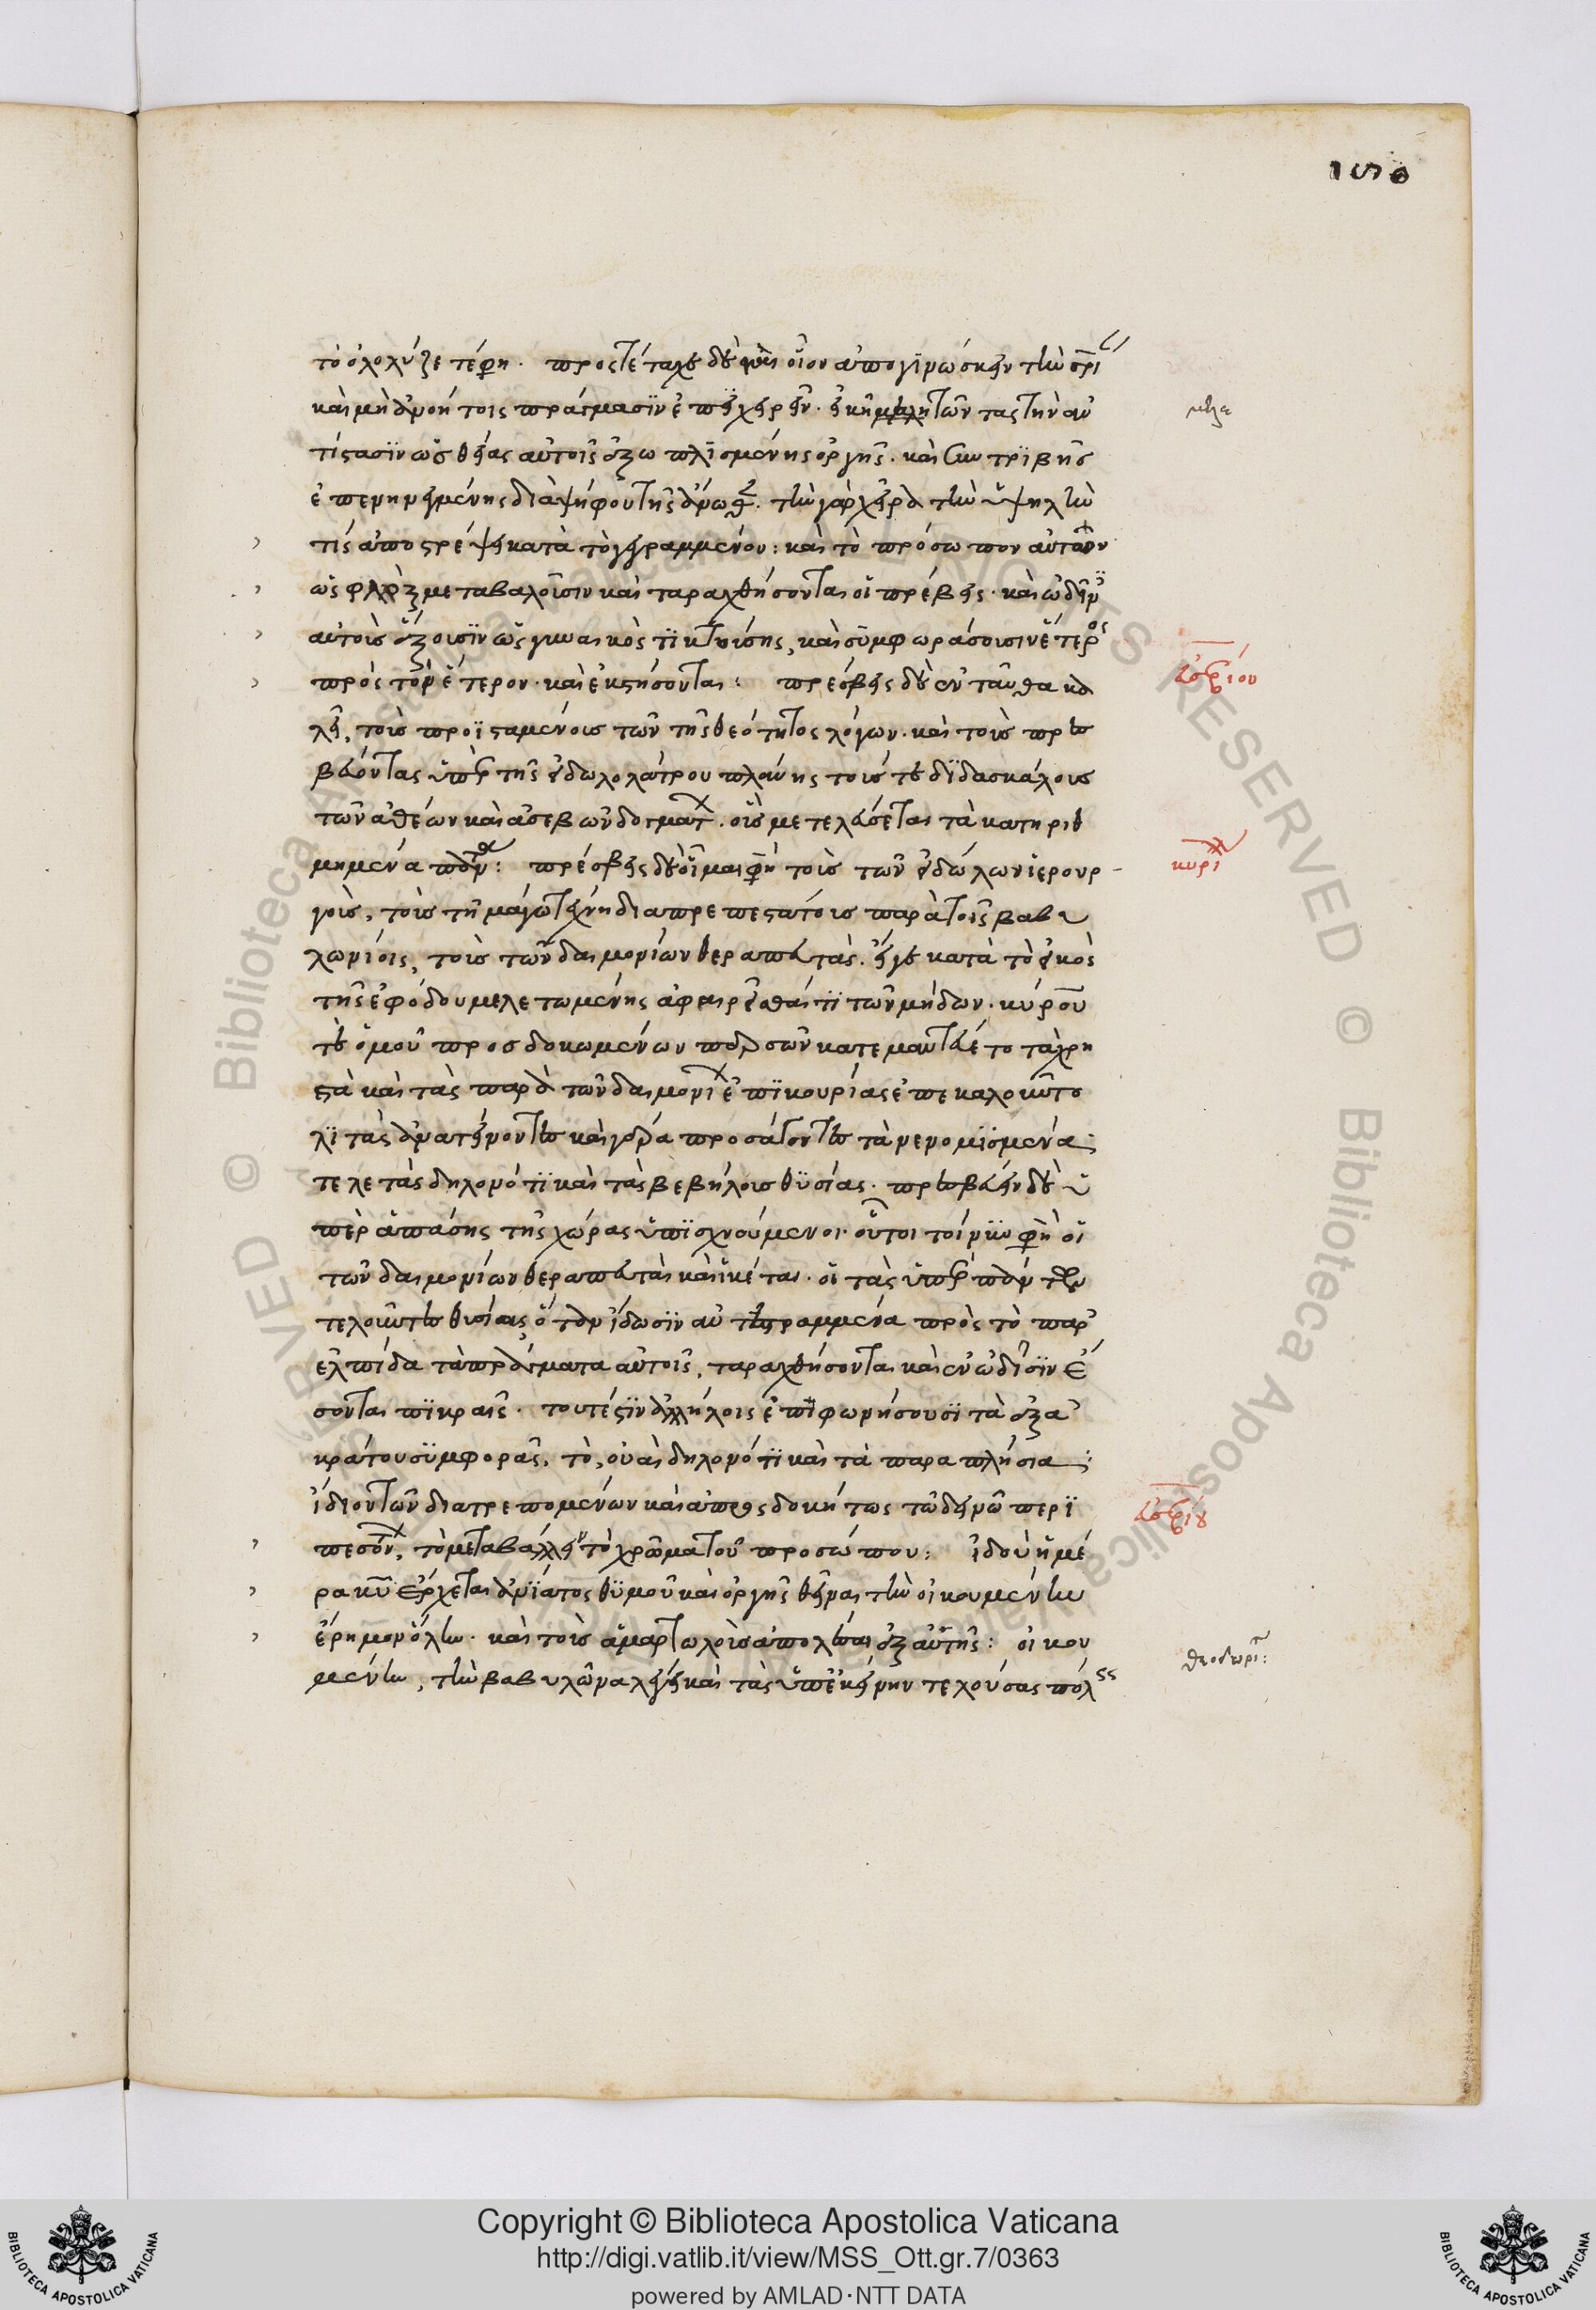 τὸ ὀλολύζετε φη. προστέταχε δὲ οἷον ἀπογινώσκειν τὴν σρι
καὶ μὴ ἀνοήτοις πράγμασιν ἐπιχειρεῖν. εἰ καὶ τῶν τὰς τὴν ἀν
τίστασιν ὡς θείας αὐτοῖς ἐξωπλισμένης ὀργῆς. καὶ συντριβῆς
ἐπενηνεγμένης διὰ ψήφου τῆς ἄνωθεν. τὴν γὰρ χεῖρα τὴν ὑψηλὴν
τίς ἀποστρέψει κατὰ τὸ γεγραμμένον: καὶ τὸ πρόσωπον αὐτῶν
ὡς φλὸξ μεταβαλοῦσιν καὶ ταραχθήσονται οἱ πρέσβεις. καὶ ὠδῖνες
αὐτοὺς ἕξουσιν ὡς γυναικὸς τικτούσης, καὶ συμφωράσουσιν ἕτερος
πρὸς τὸν ἕτερον. καὶ ἐκστήσονται: πρέσβεις δὲ ἐνταῦθα κα
λεῖ, τοὺς προϊσταμένους τῶν τῆς θεότητος λόγων. καὶ τοὺς πρεσ
βεύοντας ὑπὲρ τῆς εἰδωλολάτρου πλάνης τούς τε διδασκάλους
τῶν ἀθέων καὶ ἀσεβῶν δογμάτων. οὓς μετελεύσεται τὰ κατηριθ
μημένα πάντα: πρέσβεις δὲ οἶμαι φησὶ τοὺς τῶν εἰδώλων ἱερουρ
γούς, τοὺς τῇ μάγων τέχνῃ διαπρεπεστάτους παρὰ τοῖς βαβυ
λωνίοις, τοὺς τῶν δαιμονίων θεραπευτάς. εἴγε κατὰ τὸ εἰκὸς
τῆς ἐφόδου μελετωμένης ἀφαιρεῖσθαί τι τῶν μήδων. κύρου
τε ὁμοῦ προσδοκωμένων περσῶν κατεμαντεύετο τὰ χρη
στὰ καὶ τὰς παρὰ τῶν δαιμονίων ἐπικουρίας ἐπεκαλοῦντο
λιτὰς ἀνατείνοντες καὶ γέρα προσάγοντες τὰ νενομισμένα:
τελετὰς δηλονότι καὶ τὰς βεβήλους θυσίας. πρεσβεύειν δὲ ὑ
πὲρ ἁπάσης τῆς χώρας ὑπισχνούμενοι. οὗτοι τοίνυν φησὶ οἱ
τῶν δαιμονίων θεραπευταὶ καὶ ἱκέται. οἱ τὰς ὑπὲρ πάντων
τελοῦντες θυσίας, ὅταν ἴδωσιν ἀντιγραμμένα πρὸς τὸ παρ'
ἐλπίδα τὰ πράγματα αὐτοῖς, ταραχθήσονται καὶ ἐν ὠδῖσιν ἔ
σονται πικραῖς. τουτέστιν ἀλλήλοις ἐπιφωνήσουσι τὰ ἐξ ἀ
κράτου συμφορᾶς, τὸ, οὐαὶ δηλονότι καὶ τὰ παραπλήσια:
ἴδιον τῶν διατρεπομένων καὶ ἀπροσδοκήτως τῷ δεινῷ περι
πεσόντων, τὸ μεταβάλλειν τὸ χρῶμα τοῦ προσώπου: ἰδοὺ ἡμέ
ρα κυ ἔρχεται ἀνίατος θυμοῦ καὶ ὀργῆς θεῖναι τὴν οἰκουμένην
ἔρημον ὅλην. καὶ τοὺς ἁμαρτωλοὺς ἀπολέσαι ἐξ αὐτῆς: οἰκου
μένην, τὴν βαβυλῶνα λέγει καὶ τὰς ὑπ' ἐκείνην τελούσας πόλεις
εὐσεβίου
κυρίλ
εὐσεβίου
θεοδωρί:
Copyright © Biblioteca Apostolica Vaticana
http://digi.vatlib.it/view/MSS_Ott.gr.7/0363
powered by AMLAD·NTT DATA
BIBLIOTECA APOSTOLICA VATICANA
BIBLIOTECA APOSTOLICA VATICANA